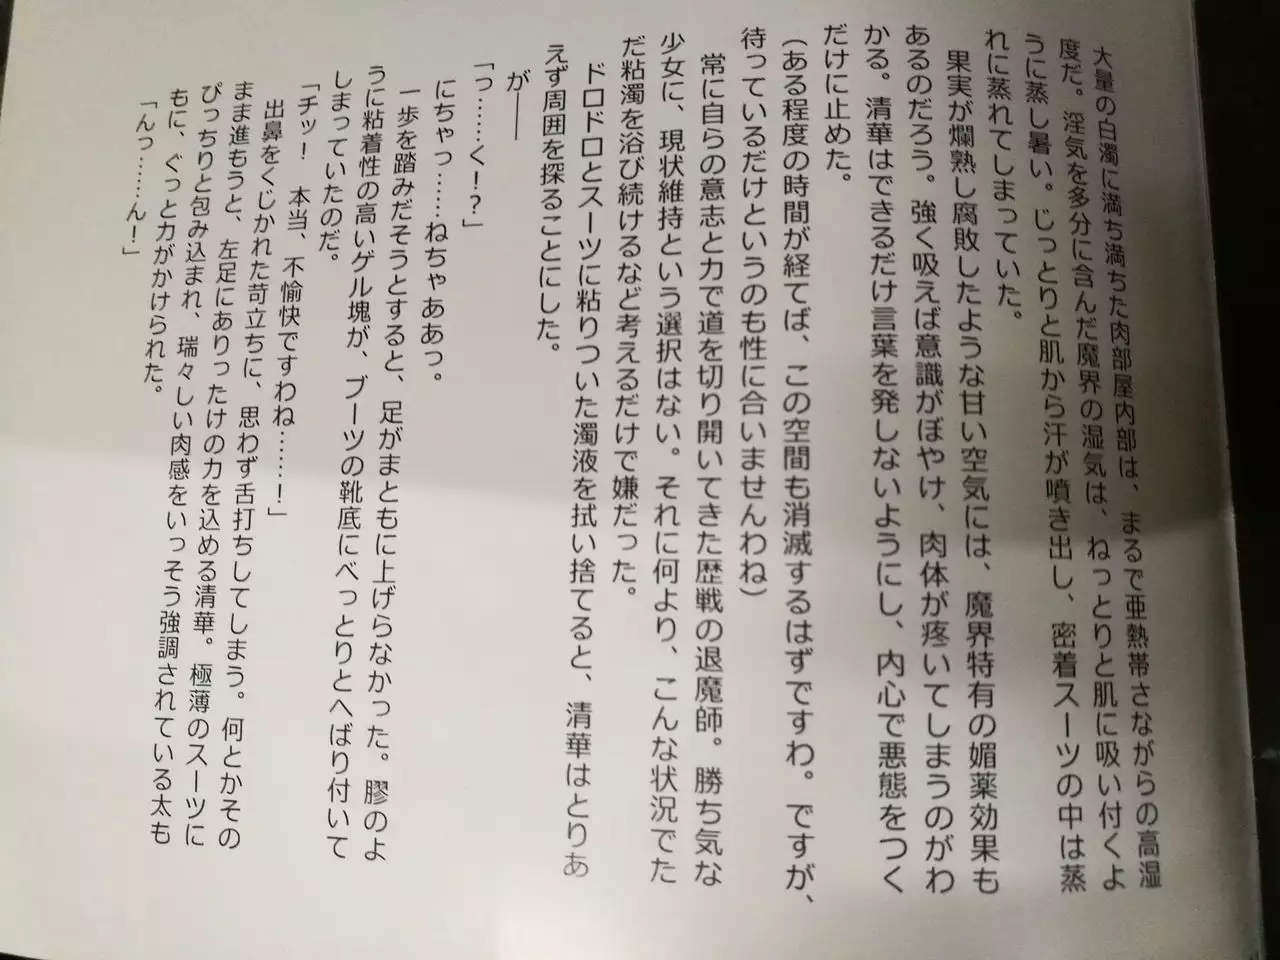 大量の白濁に満ち満ちた肉部屋内部は、まるで亜熱帯さながらの高湿
度だ。淫気を多分に含んだ魔界の湿気は、ねっとりと肌に吸い付くよ
うに蒸し暑い。じっとりと肌から汗が噴き出し、密着スーツの中は蒸
れに蒸れてしまっていた。
果実が爛熟し腐敗したような甘い空気には、魔界特有の媚薬効果も
あるのだろう。強く吸えば意識がぼやけ、肉体が疼いてしまうのがわ
かる。清華はできるだけ言葉を発しないようにし、内心で悪態をつく
だけに止めた。
(ある程度の時間が経てば、この空間も消滅するはずですわ。ですが、
待っているだけというのも性に合いませんわね)
常に自らの意志と力で道を切り開いてきた歴戦の退魔師。勝ち気な
少女に、現状維持という選択はない。それに何より、こんな状況でた
だ粘濁を浴び続けるなど考えるだけで嫌だった。
ドロドロとスーツに粘りついた濁液を拭い捨てると、清華はとりあ
えず周囲を探ることにした。
が――
「っ……く!?」
にちゃっ……ねちゃああっ。
一歩を踏みだそうとすると、足がまともに上げらなかった。膠のよ
うに粘着性の高いゲル塊が、ブーツの靴底にべっとりとへばり付いて
しまっていたのだ。
「チッ！　本当、不愉快ですわね……！」
出鼻をくじかれた苛立ちに、思わず舌打ちしてしまう。何とかその
まま進もうと、左足にありったけの力を込める清華。極薄のスーツに
ぴっちりと包み込まれ、瑞々しい肉感をいっそう強調されている太も
もに、ぐっと力がかけられた。
「んっ……ん！」